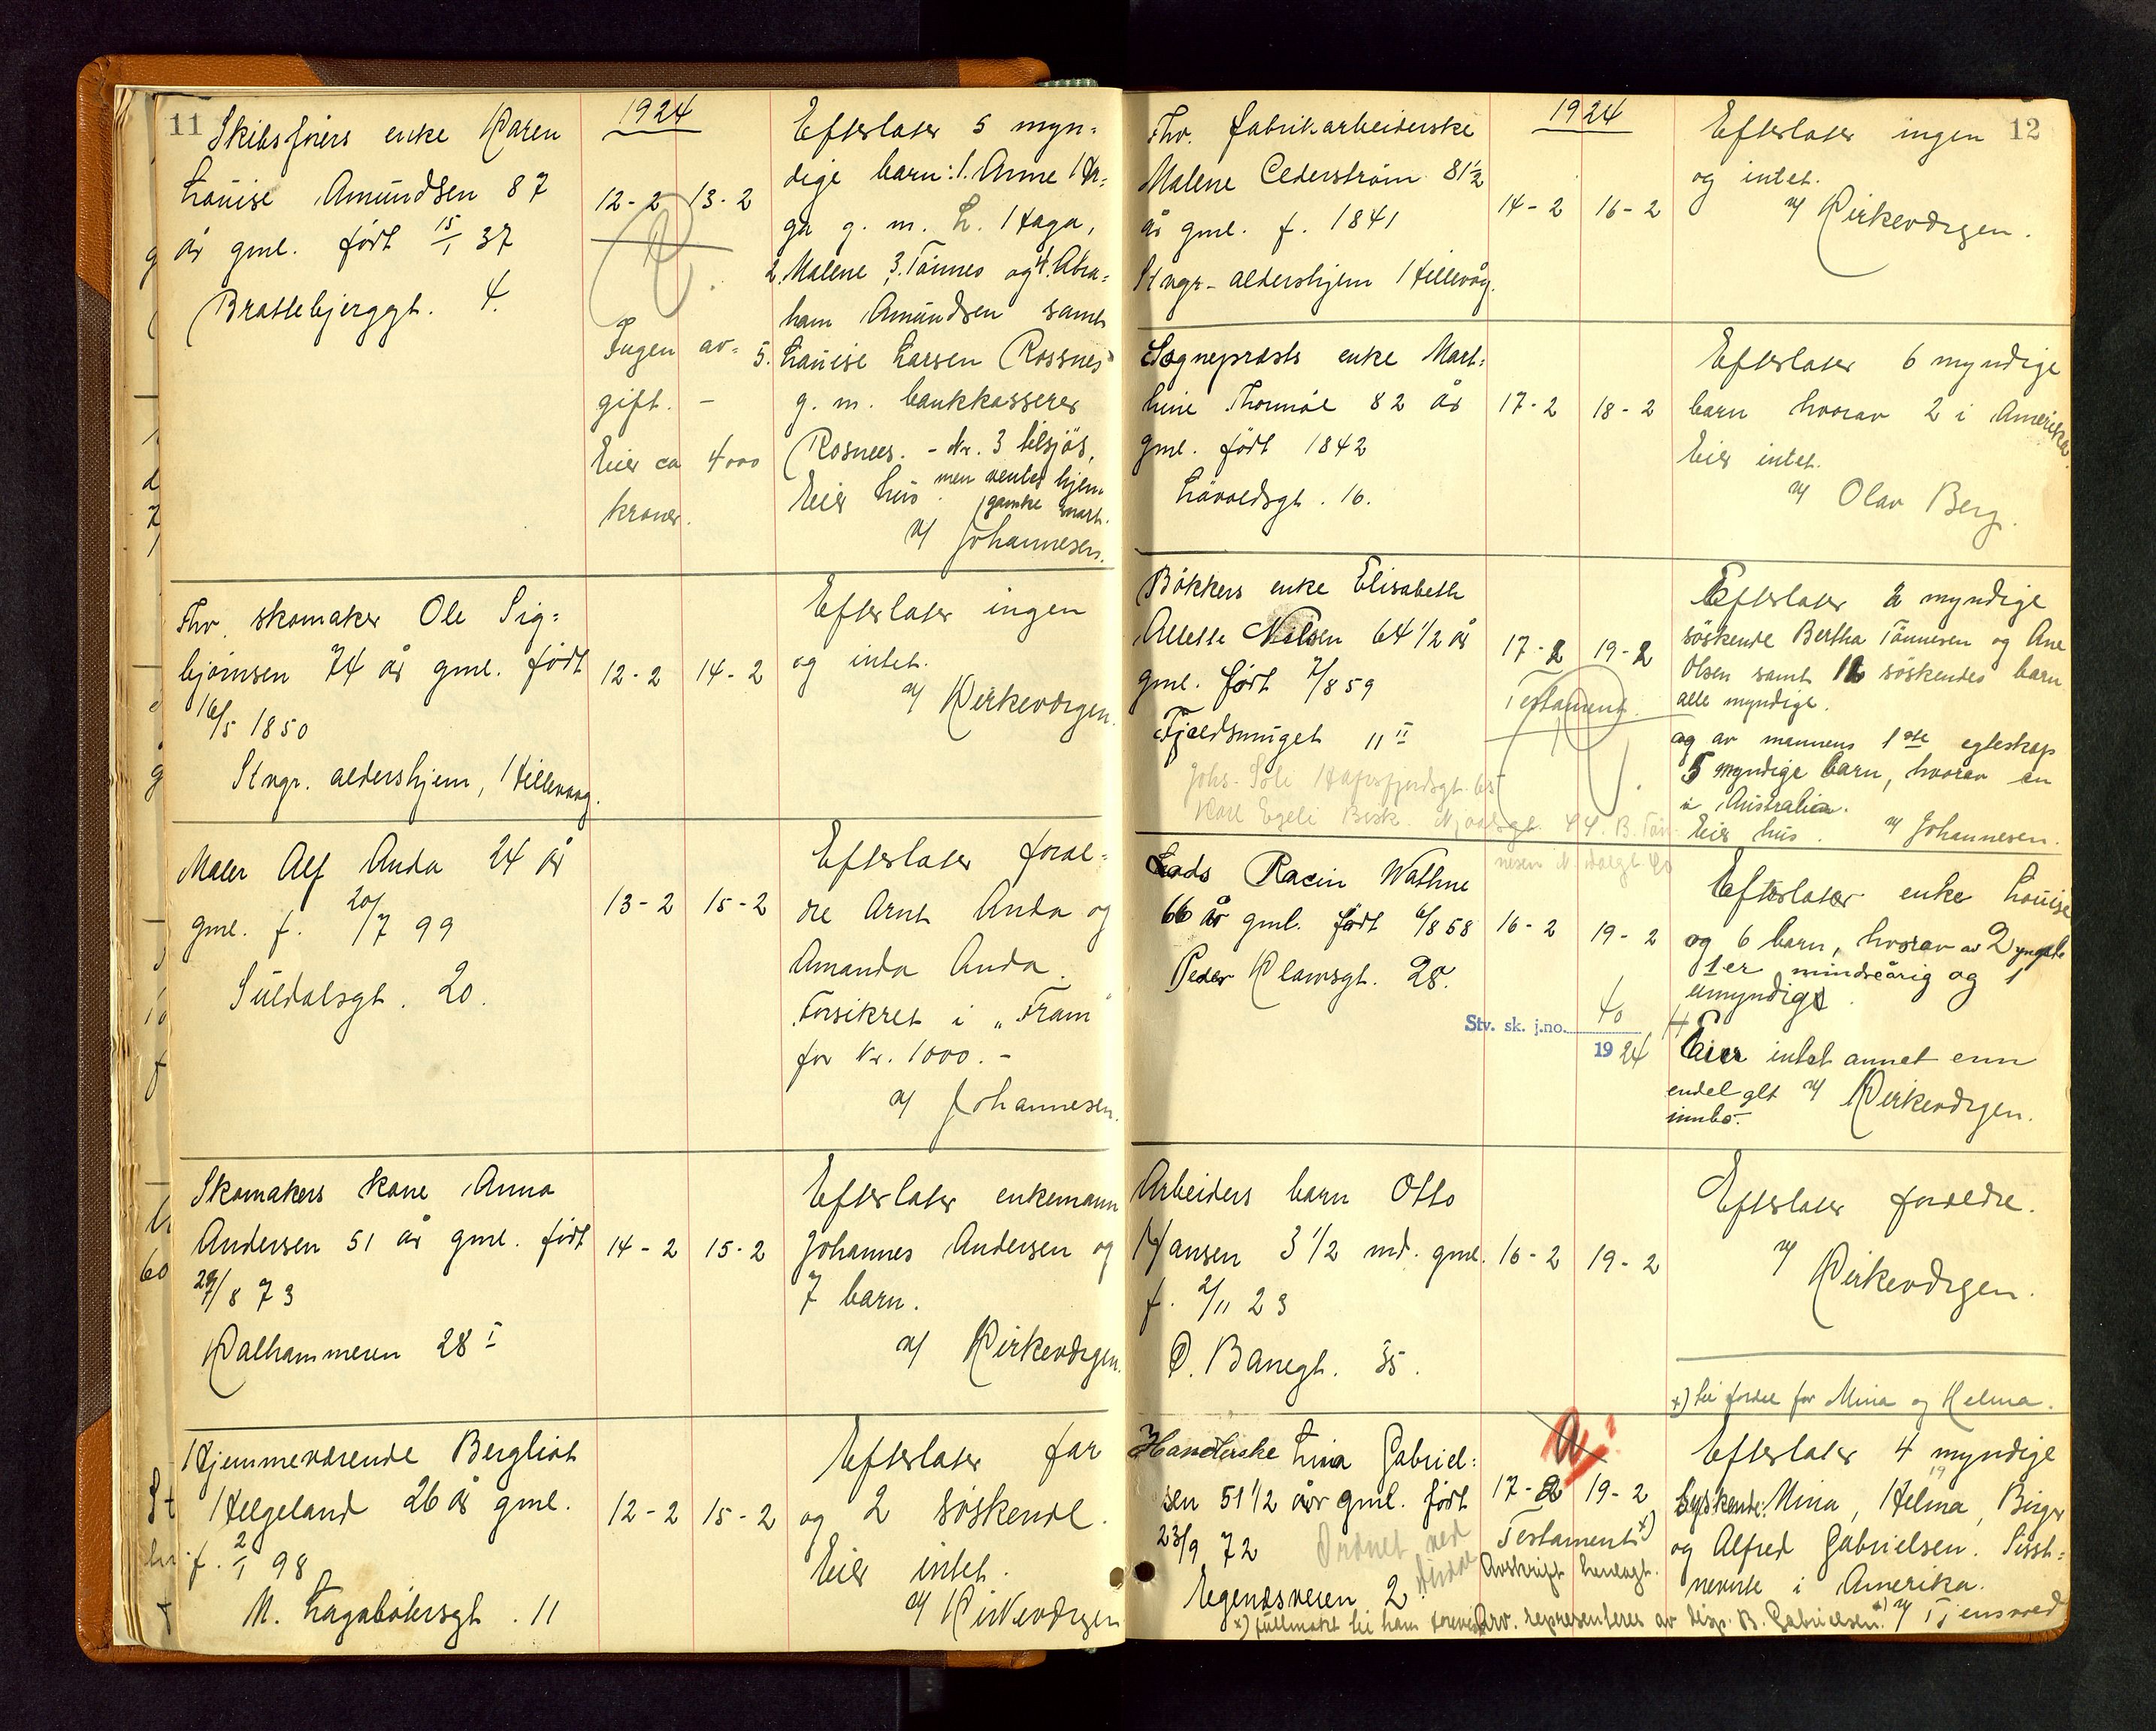 11
1924
Skibsförers enke Karen
Lovise Amundsen 87
år gml. født 15/1 37
Brattebjerggt. 4.
12-2 13-2
Ingen av-
gift. -
Eier ca 4000
kroner.
Efterlater 5 myn-
dige barn: 1. Anne Ha-
ga g. m. L. Haga,
2. Malene, 3. Tönnes og 4. Abra-
ham Amundsen samt
5. Lovise Larsen Rossnes
g. m. bankkasserer
Rosnes. - Nr. 3 tilsjös,
men ventes hjem
Eier hus. ganske snart.
v/ Johannesen.
Fhv. skomaker Ole Sig-
björnsen 74 år gml. født
16/5 1850
Stvgr. aldershjem, Hillevaag.
12-2 14-2
Efterlater ingen
og intet.
v/ Kirkevergen.
Maler Alf Anda 24 år
gml. f. 20/7 99
Suldalsgt. 20.
13-2 15-2
Efterlater foræl-
dre Arnt Anda og
Amanda Anda.
Forsikret i "Fram"
for kr. 1000.-
v/ Johannesen.
Skomakers kone Anna
Andersen 51 år gml. født
29/8 73
Kalhammeren 28 I
14-2 15-2
Efterlater enkemann
Johannes Andersen og
7 barn.
v/ Kirkevergen.
Hjemmeværende Bergliot
Helgeland 26 år gml.
f. 2/1 98
M. Lagabötersgt. 11
12-2 15-2
Efterlater far
og 2 söskende.
Eier intet.
v/ Kirkevergen
12
1924
Fhv. fabrikarbeiderske
Malene Cederström 81 1/2
år gml. f. 1841
Stvgr- aldershjem Hillevåg.
14-2 16-2
Efterlater ingen
og intet.
v/ Kirkevergen.
Sogneprests enke Mart-
hine Thormöe 82 år
gml. født 1842
Lövoldsgt. 16.
17-2 18-2
Efterlater 6 myndige
barn hvorav 2 i Amerika.
Eier intet.
v/ Olav Berg.
Bökkers enke Elisabeth
Allette Nilsen 64 1/2 år
gml. født 7/8 59
Fjeldsmuget 11 II
Johs. Sole Hafrsfjordsgt. 65
Karl Egeli Besk. Njaalsgt. 44. B. Tön-
nesen
17-2 19-2
Testament.
Efterlater 2 myndige
söskende Bertha Tönnesen og Ane
Olsen samt 12 söskendes barn
alle myndige.
og av mannens 1ste egteskap
5 myndige barn, hvorav en
i Australia.
Eier hus. v/ Johannesen.
Lods Racin Wathne
66 år gml. født 6/8 58
Peder Klowsgt. 28.
16-2 19-2
Stv. sk. j.no. 40
1924
Efterlater enke Lovise
og 6 barn, hvorav av 2 yngste
1 er mindreårig og 1
umyndigt.
Eier intet annet enn
endel glt v/ Kirkevergen.
innbo.
Arbeiders barn Otto
Hansen 3 1/2 md. gml.
f. 2/11 23
Ö. Banegt. 35.
16-2 19-2
Efterlater foreldre.
v/ Kirkevergen.
x) til fordel for Mina og Helma.
Handlerske Lina Gabriel-
sen 51 1/2 år gml. født
23/9 72
Egenesveien 2
Ordnet ved
17-2 19-2
Testament x)
Avskrift henlagt.
Efterlater 4 myndige
søskende: Mina, Helma, Birger
og Alfred Gabrielsen. Sist-
nevnte i Amerika.
v/ Tjensvold
x) fullmakt til ham
Arv. representeres av disp. B. Gabrielsen. x)